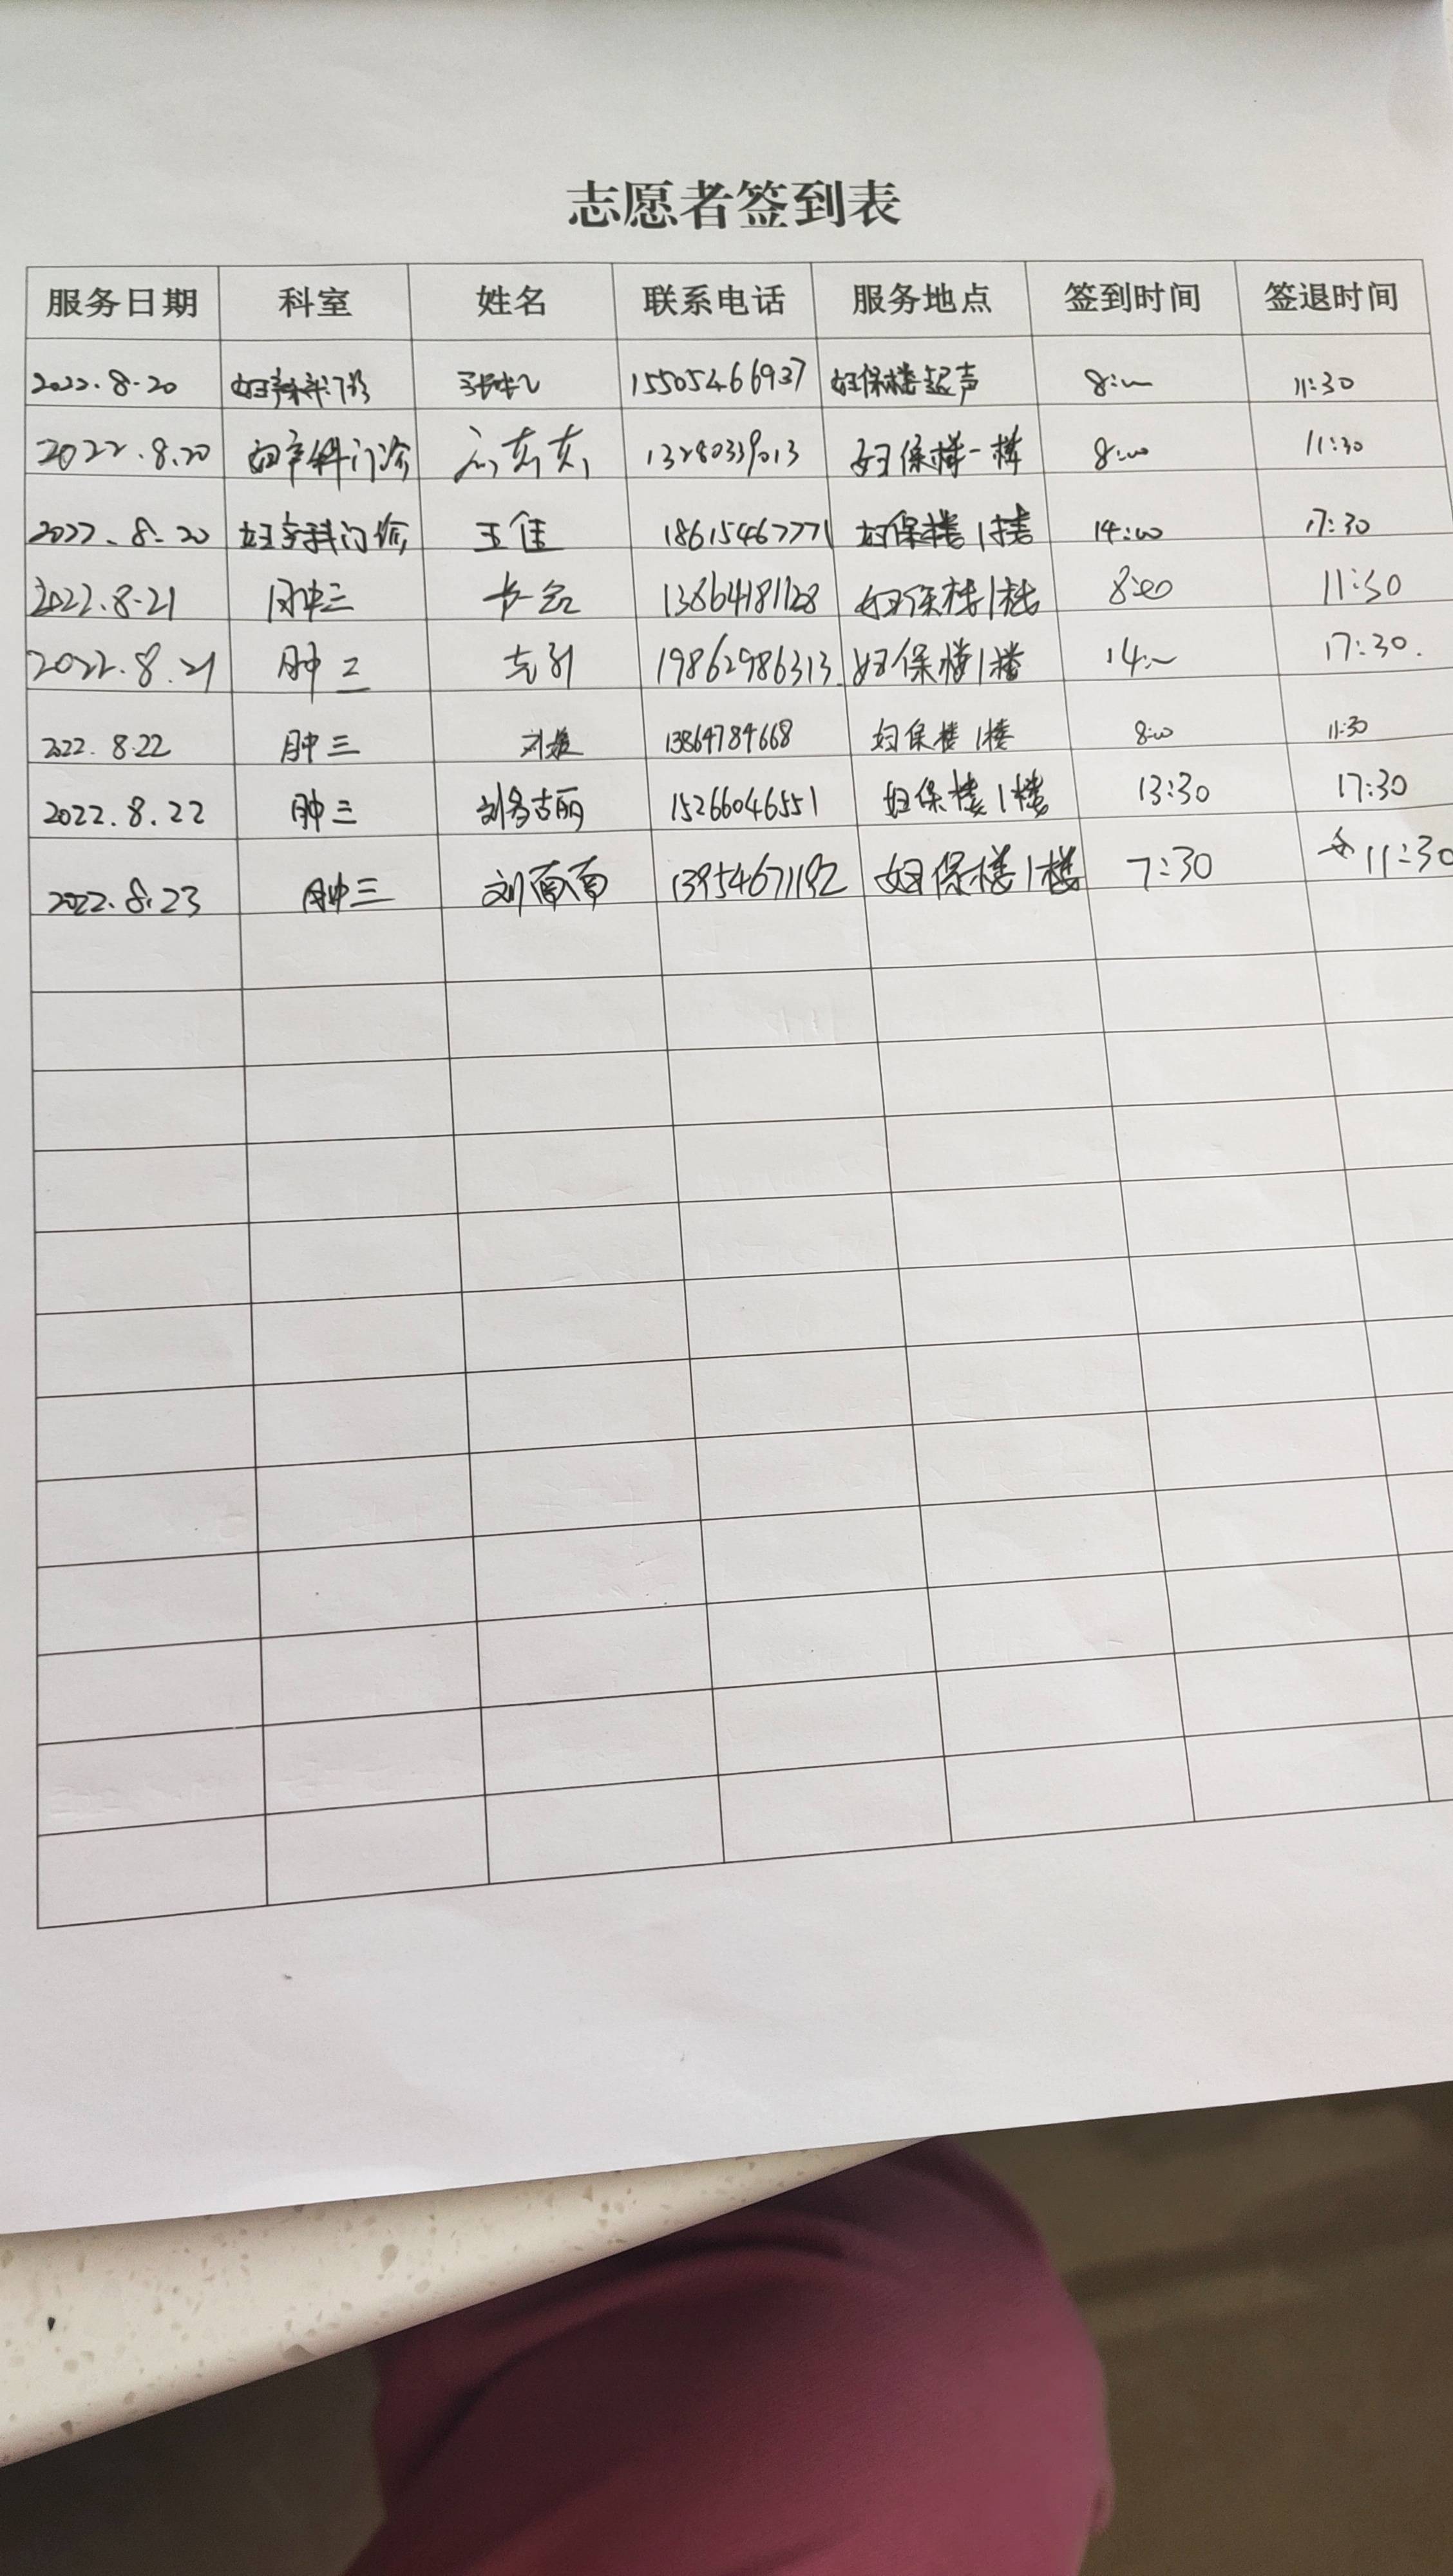 志愿者签到表
服务日期 科室 姓名 联系电话 服务地点 签到时间 签退时间
2022.8.20 妇产科门诊 15505466937 妇保楼超声 8:00 11:30
2022.8.20 妇产科门诊 13280339013 妇保楼一楼 8:00 11:30
2022.8.20 妇产科门诊 王佳 18615467771 妇保楼1楼 14:00 17:30
2022.8.21 肿三 13864181128 妇保楼1楼 8:00 11:30
2022.8.21 肿三 19862986313 妇保楼1楼 14:00 17:30.
2022.8.22 肿三 13864784668 妇保楼1楼 8:00 11:30
2022.8.22 肿三 15266046551 妇保楼1楼 13:30 17:30
2022.8.23 肿三 刘面面 13954671192 妇保楼1楼 7:30 11:30